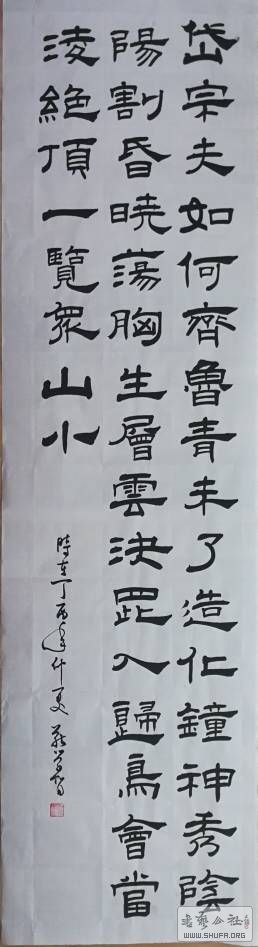 岱宗夫如何齊魯青未了造化鐘神秀陰
陽割昏曉蕩胸生層雲決眥入歸鳥會當
淩絕頂一覽眾山小
時在丁酉年仲夏
書藝公社
WWW.SHUFA.ORG